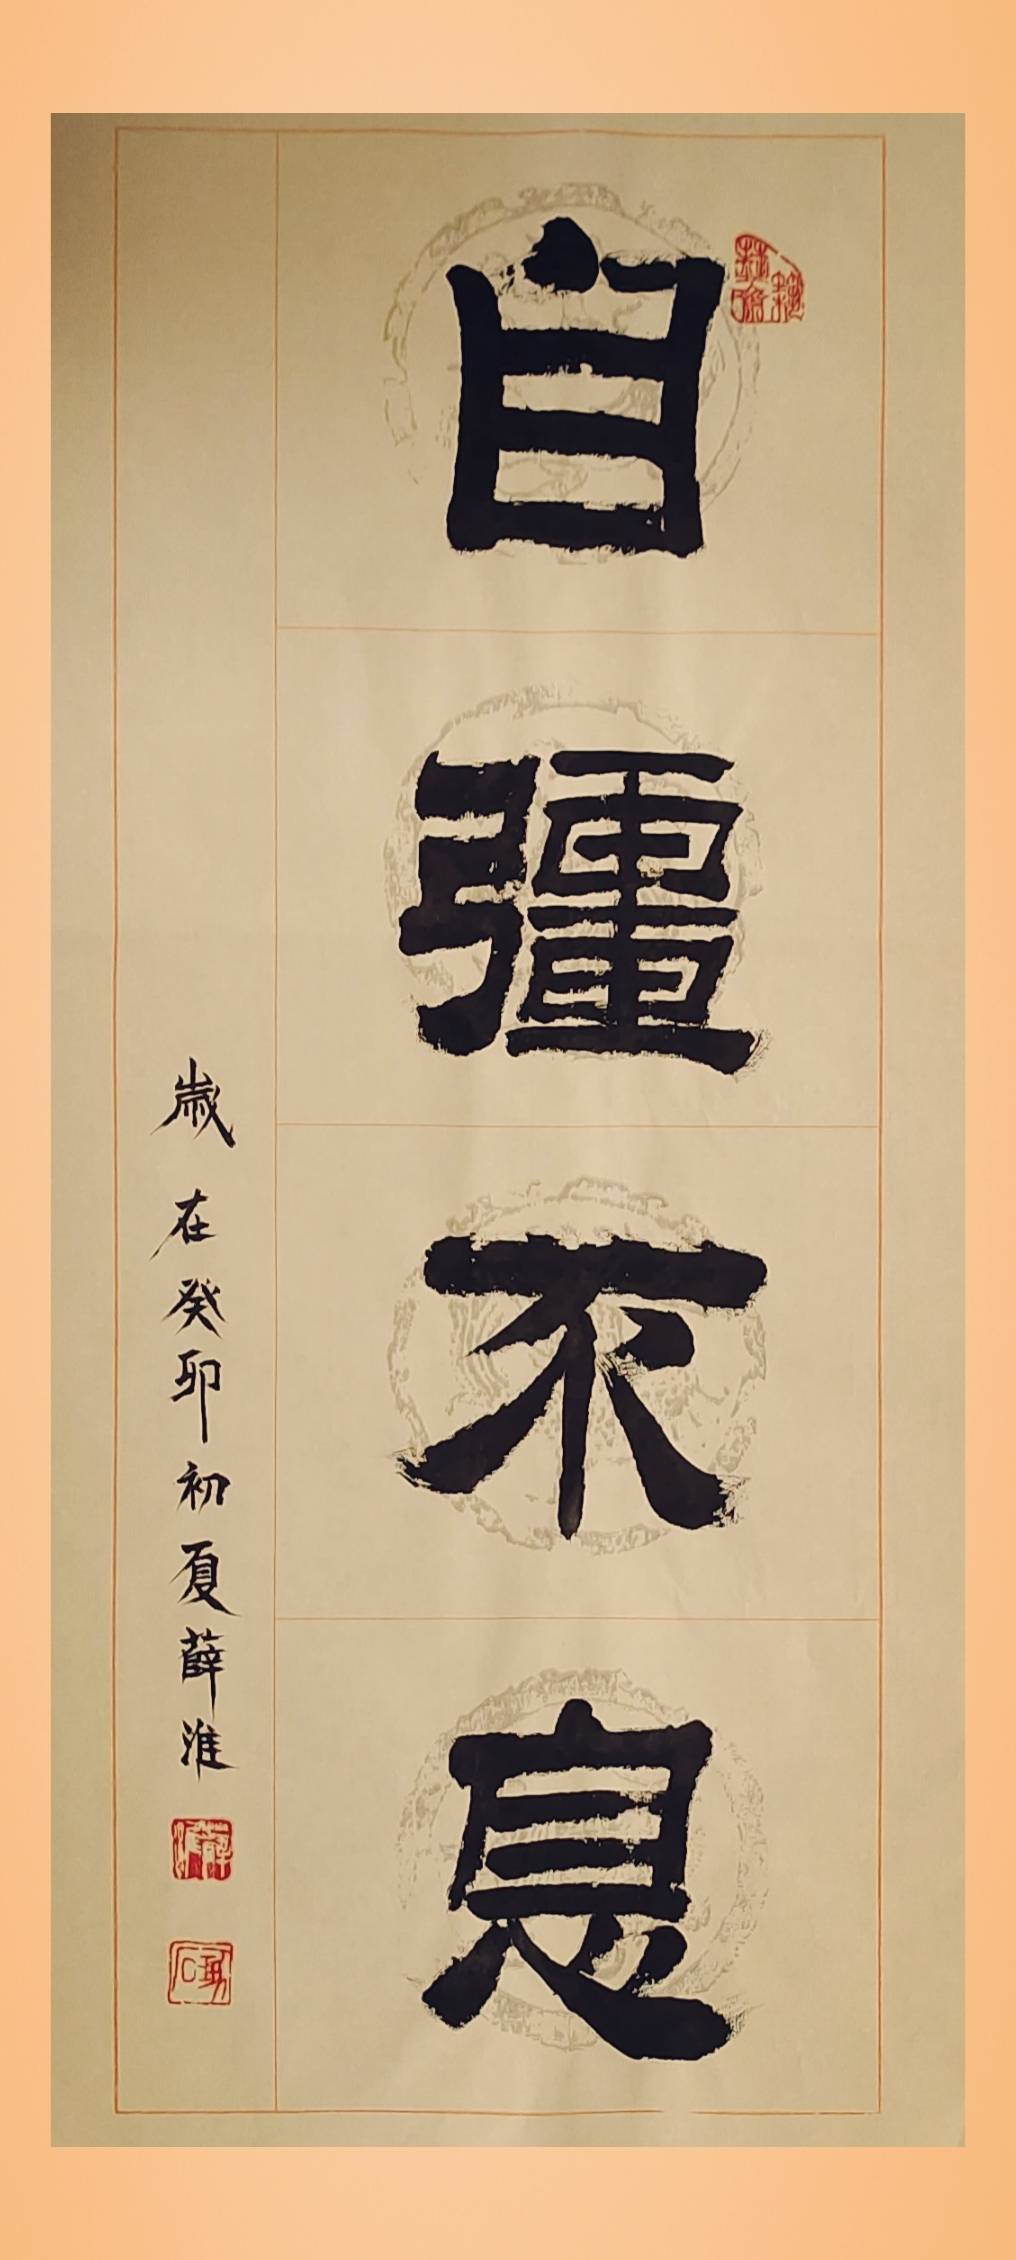 自彊不息
歲在癸卯初夏薛淮